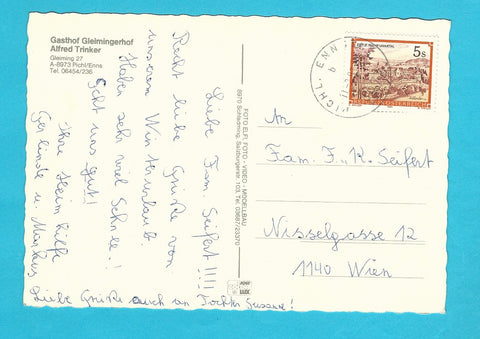 Gasthof Gleimingerhof
Alfred Trinker
Gleiming 27
A-8973 Pichl/Enns
Tel. 06454/236
Liebe Fam. Seifert!!!!
Recht liebe Grüße von
unserem Winterurlaub
Haben sehr viel Schnee!
Geht uns gut!
Ihre Heimhilfe
Gerlinde u. Markus
Liebe Grüße auch an Tochter Susanne!
FOTO ELFI, FOTO - VIDEO - MODELLBAU
8970 Schladming, Salzburgerstr. 103, Tel. 03687/23070
PICHL, ENN
5 S
REPUBLIK ÖSTERREICH
An
Fam. F. u. K. Seifert
Nisselgasse 12
1140 Wien